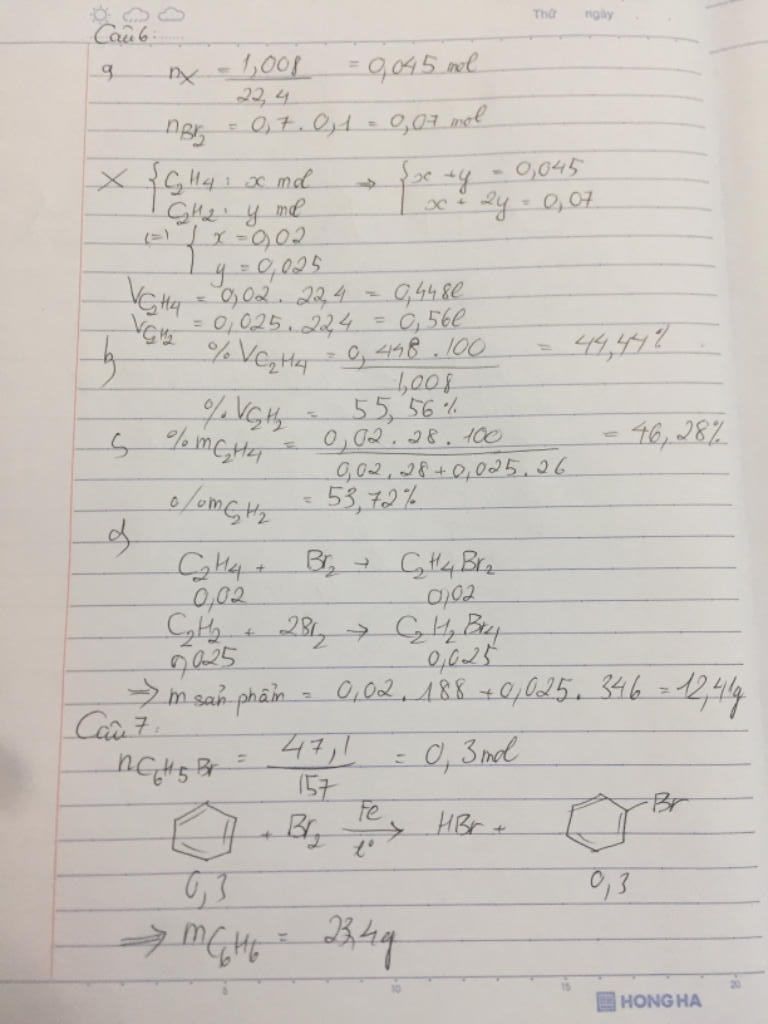 Thứ ngày
Câu 6:
a nX = 1,008 / 22,4 = 0,045 mol
nBr2 = 0,7 . 0,1 = 0,07 mol
X { C2H4 : x mol → { x + y = 0,045
C2H2 : y mol x + 2y = 0,07
(=) { x = 0,02
y = 0,025
VC2H4 = 0,02 . 22,4 = 0,448l
VC2H2 = 0,025 . 22,4 = 0,56l
b %VC2H4 = 0,448 . 100 / 1,008 = 44,44%
%VC2H2 = 55,56%
c %mC2H4 = 0,02 . 28 . 100 / 0,02 . 28 + 0,025 . 26 = 46,28%
%mC2H2 = 53,72%
d
C2H4 + Br2 → C2H4Br2
0,02 0,02
C2H2 + 2Br2 → C2H2Br4
0,025 0,025
=> m sản phẩm = 0,02 . 188 + 0,025 . 346 = 12,41g
Câu 7:
nC6H5Br = 47,1 / 157 = 0,3 mol
+ Br2 Fe → t° HBr + Br
0,3 0,3
=> mC6H6 = 23,4g
5 10 15 20
HONG HA